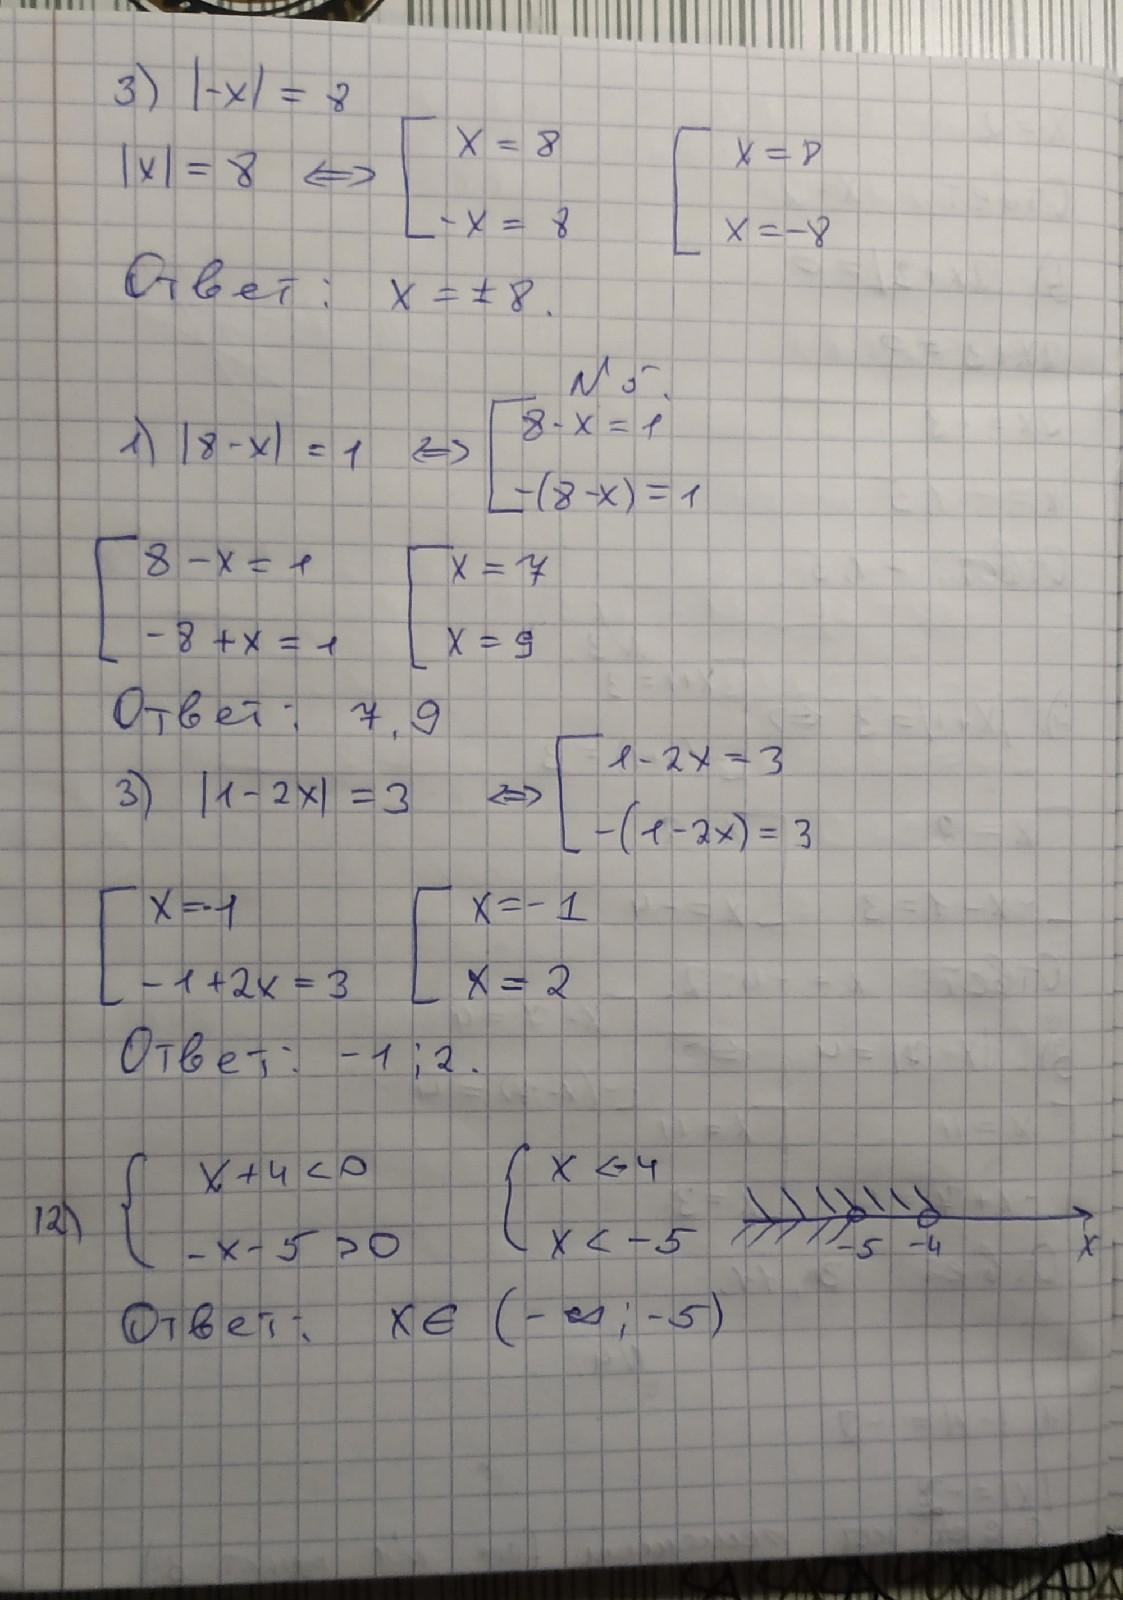 3) |-x| = 8
|x| = 8 ⇔ [ x = 8 [ x = 8
-x = 8 x = -8
Ответ: x = ± 8.
N 5.
1) |8 - x| = 1 ⇔ [ 8 - x = 1
-(8 - x) = 1
[ 8 - x = 1 [ x = 7
-8 + x = 1 x = 9
Ответ: 7, 9
3) |1 - 2x| = 3 ⇔ [ 1 - 2x = 3
-(1 - 2x) = 3
[ x = -1 [ x = -1
-1 + 2x = 3 x = 2
Ответ: -1; 2.
12) { x + 4 < 0 { x < -4
-x - 5 > 0 x < -5 -5 -4 x
Ответ: x ∈ (-∞; -5)